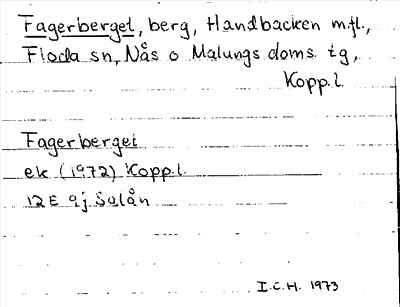 Fagerberget, berg, Handbacken m.fl.,
Floda sn, Nås o Malungs doms. tg,
Kopp.l.
Fagerberget
ek (1972) Kopp.l.
12E 9j Salån
I.C.H. 1973